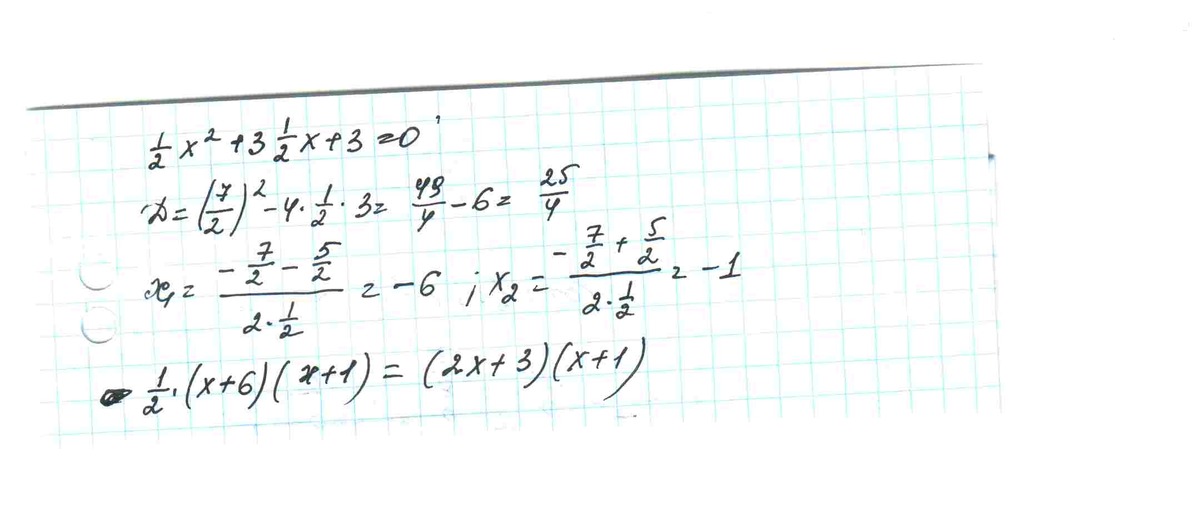 1/2 x² + 3 1/2 x + 3 = 0
D = (7/2)² - 4 · 1/2 · 3 = 49/4 - 6 = 25/4
x₁ = (-7/2 - 5/2)/(2 · 1/2) = -6 ; x₂ = (-7/2 + 5/2)/(2 · 1/2) = -1
1/2 · (x+6)(x+1) = (2x+3)(x+1)